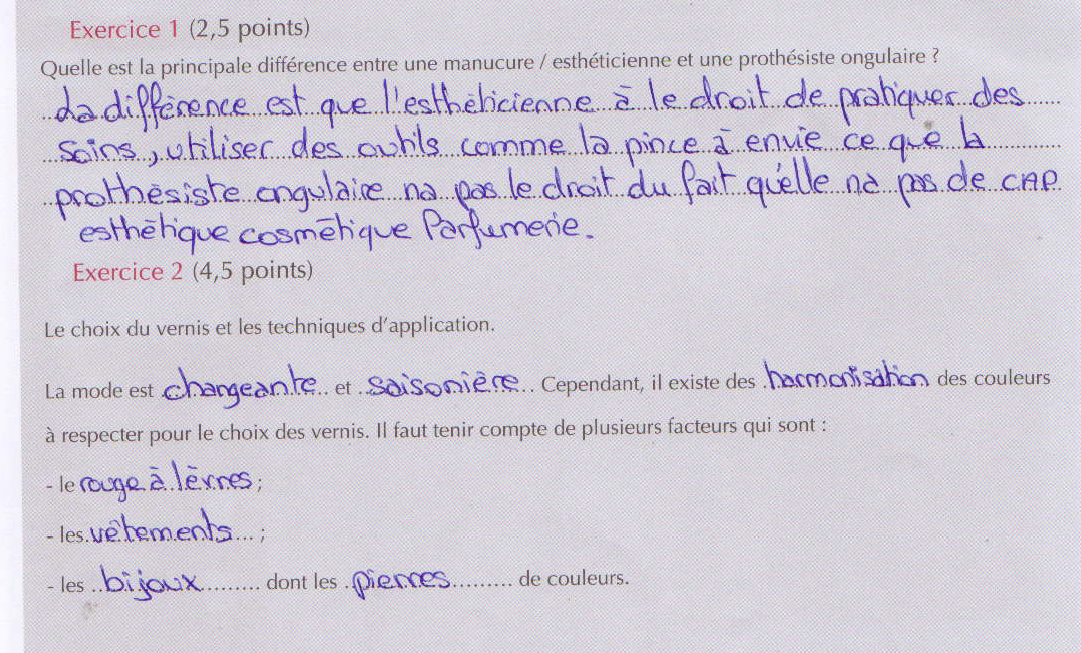 Exercice 1 (2,5 points)
Quelle est la principale différence entre une manucure / esthéticienne et une prothésiste ongulaire ?
La différence est que l'esthéticienne à le droit de pratiquer des
soins, utiliser des outils comme la pince à envie ce que la
prothésiste ongulaire na pas le droit du fait qu'elle na pas de CAP
esthétique cosmétique Parfumerie.
Exercice 2 (4,5 points)
Le choix du vernis et les techniques d'application.
La mode est changeante et saisonière. Cependant, il existe des harmonisation des couleurs
à respecter pour le choix des vernis. Il faut tenir compte de plusieurs facteurs qui sont :
- le rouge à lèvres ;
- les vêtements ;
- les bijoux dont les pierres de couleurs.